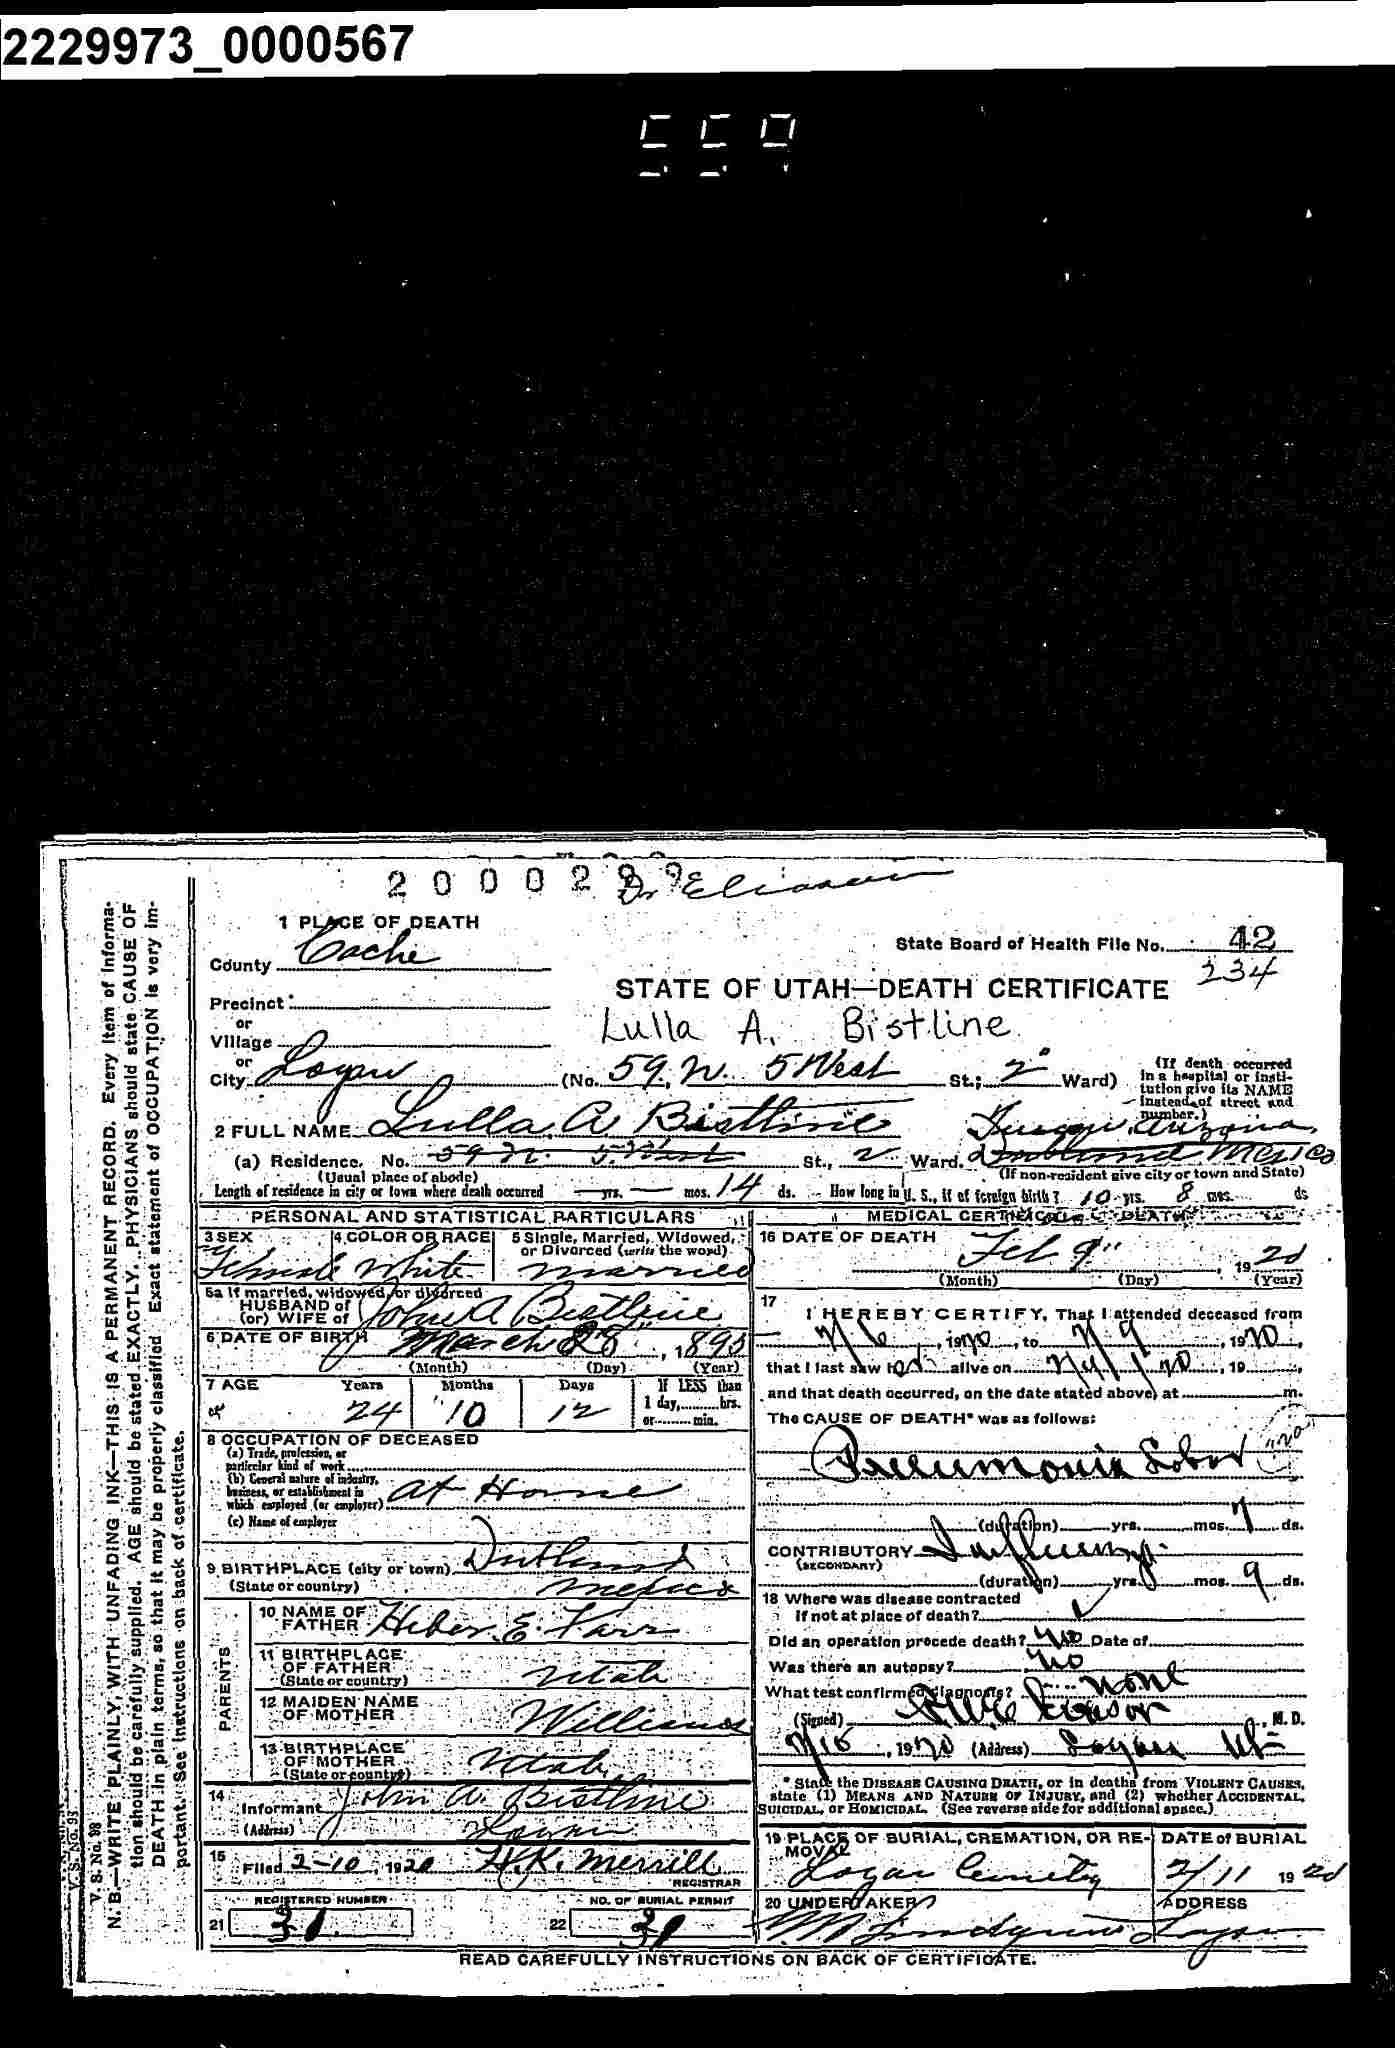 2229973_0000567
559
2000299 Dr Eliason
1 PLACE OF DEATH
County Cache
State Board of Health File No. 42
234
Precinct
or
Village
STATE OF UTAH—DEATH CERTIFICATE
Lulla A. Bistline
or
City Logan (No. 59 N 5 West St.; 2" Ward)
(If death occurred in a hospital or institution give its NAME instead of street and number.)
2 FULL NAME Lulla A Bistline
Tuscon Arizona
(a) Residence. No. 59 N. 5 West St., 2 Ward. Mexico
(Usual place of abode) (If non-resident give city or town and State)
Length of residence in city or town where death occurred — yrs. — mos. 14 ds. How long in U. S., if of foreign birth? 10 yrs. 8 mos. ds
PERSONAL AND STATISTICAL PARTICULARS
3 SEX
Female
4 COLOR OR RACE
White
5 Single, Married, Widowed, or Divorced (write the word)
married
5a If married, widowed, or divorced
HUSBAND of
(or) WIFE of John A Bistline
6 DATE OF BIRTH March 28, 1895
(Month) (Day) (Year)
7 AGE Years Months Days If LESS than
24 10 12 1 day, hrs.
or min.
8 OCCUPATION OF DECEASED
(a) Trade, profession, or
particular kind of work
(b) General nature of industry,
business, or establishment in
which employed (or employer) at Home
(c) Name of employer
9 BIRTHPLACE (city or town) Dublan
(State or country) Mexico
PARENTS
10 NAME OF
FATHER Heber E. Farr
11 BIRTHPLACE
OF FATHER
(State or country) Utah
12 MAIDEN NAME
OF MOTHER Williams
13 BIRTHPLACE
OF MOTHER
(State or country) Utah
14
Informant John A. Bistline
(Address) Logan
15
Filed 2-10, 1920 H.K. Merrill
REGISTRAR
REGISTERED NUMBER NO. OF BURIAL PERMIT
21 31 22 31
MEDICAL CERTIFICATE OF DEATH
16 DATE OF DEATH
Feb 9", 1920
(Month) (Day) (Year)
17
I HEREBY CERTIFY, That I attended deceased from
2/6, 1920, to 2/9, 1920,
that I last saw h alive on , 19
and that death occurred, on the date stated above, at m.
The CAUSE OF DEATH* was as follows:
Pneumonia Lobar
(duration) yrs. mos. 7 ds.
CONTRIBUTORY Influenza
(SECONDARY)
(duration) yrs. mos. 9 ds.
18 Where was disease contracted
if not at place of death?
Did an operation precede death? No Date of
Was there an autopsy? No
What test confirmed diagnosis? none
(Signed) Eliason, M. D.
2/10, 1920 (Address) Logan Ut
* State the DISEASE CAUSING DEATH, or in deaths from VIOLENT CAUSES,
state (1) MEANS AND NATURE OF INJURY, and (2) whether ACCIDENTAL,
SUICIDAL, or HOMICIDAL. (See reverse side for additional space.)
19 PLACE OF BURIAL, CREMATION, OR RE-
MOVAL
Logan Cemetery
DATE of BURIAL
2/11 1920
20 UNDERTAKER
Lindquist
ADDRESS
Logan
READ CAREFULLY INSTRUCTIONS ON BACK OF CERTIFICATE.
V. S. No. 93
V. S. No. 98
N. B.—WRITE PLAINLY, WITH UNFADING INK—THIS IS A PERMANENT RECORD. Every item of informa-
tion should be carefully supplied. AGE should be stated EXACTLY. PHYSICIANS should state CAUSE OF
DEATH in plain terms, so that it may be properly classified. Exact statement of OCCUPATION is very im-
portant. See instructions on back of certificate.